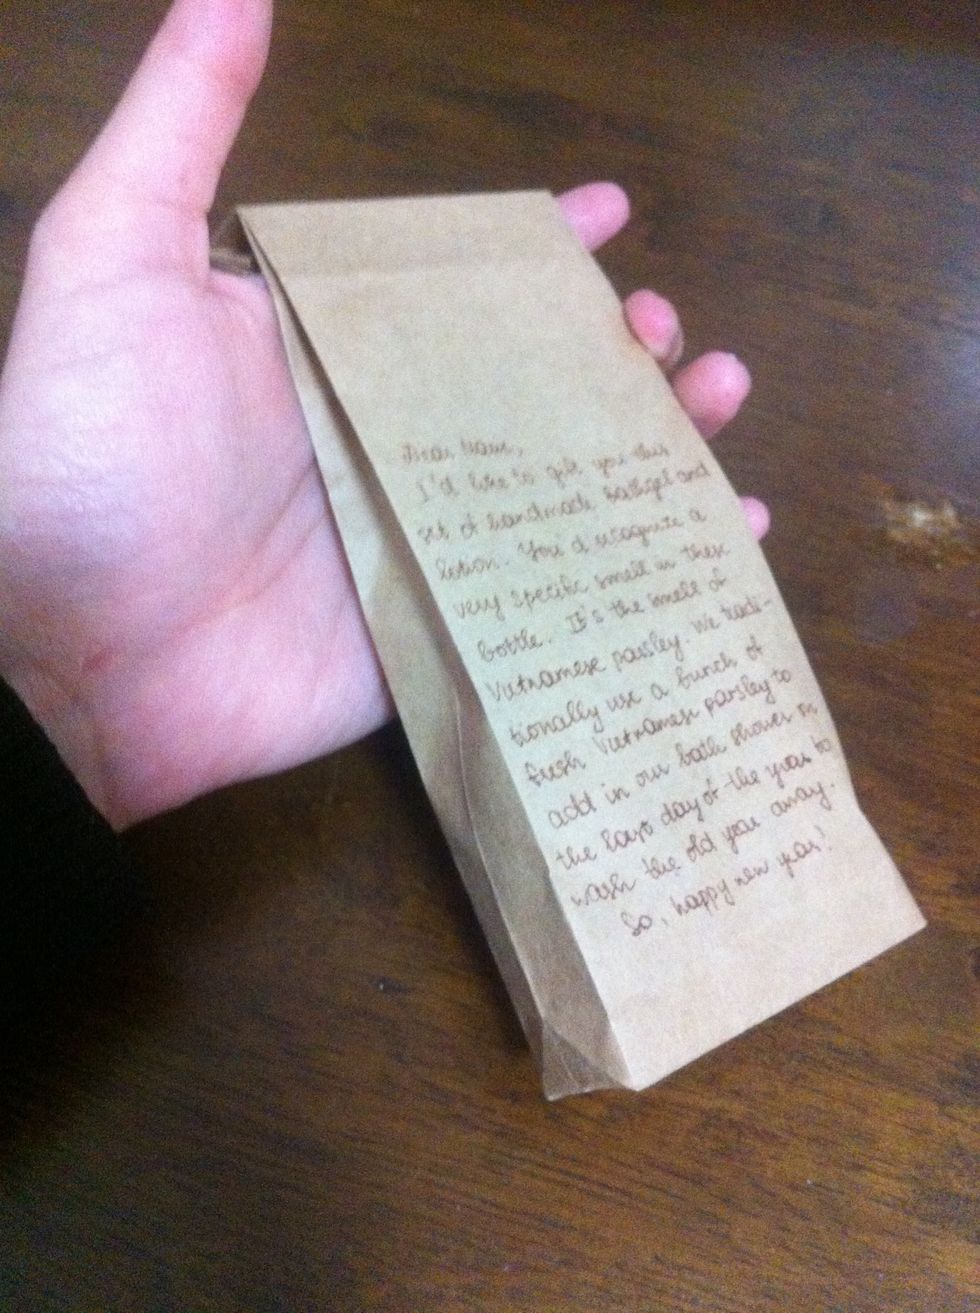 Dear Mami,
I'd like to gift you this
set of handmade bathgel and
lotion. You'd recognize a
very specific smell in these
bottle. It's the smell of
Vietnamese parsley. We tradi-
tionally use a bunch of
fresh Vietnamese parsley to
add in our bath shower on
the last day of the year to
wash the old year away.
So, happy new year!